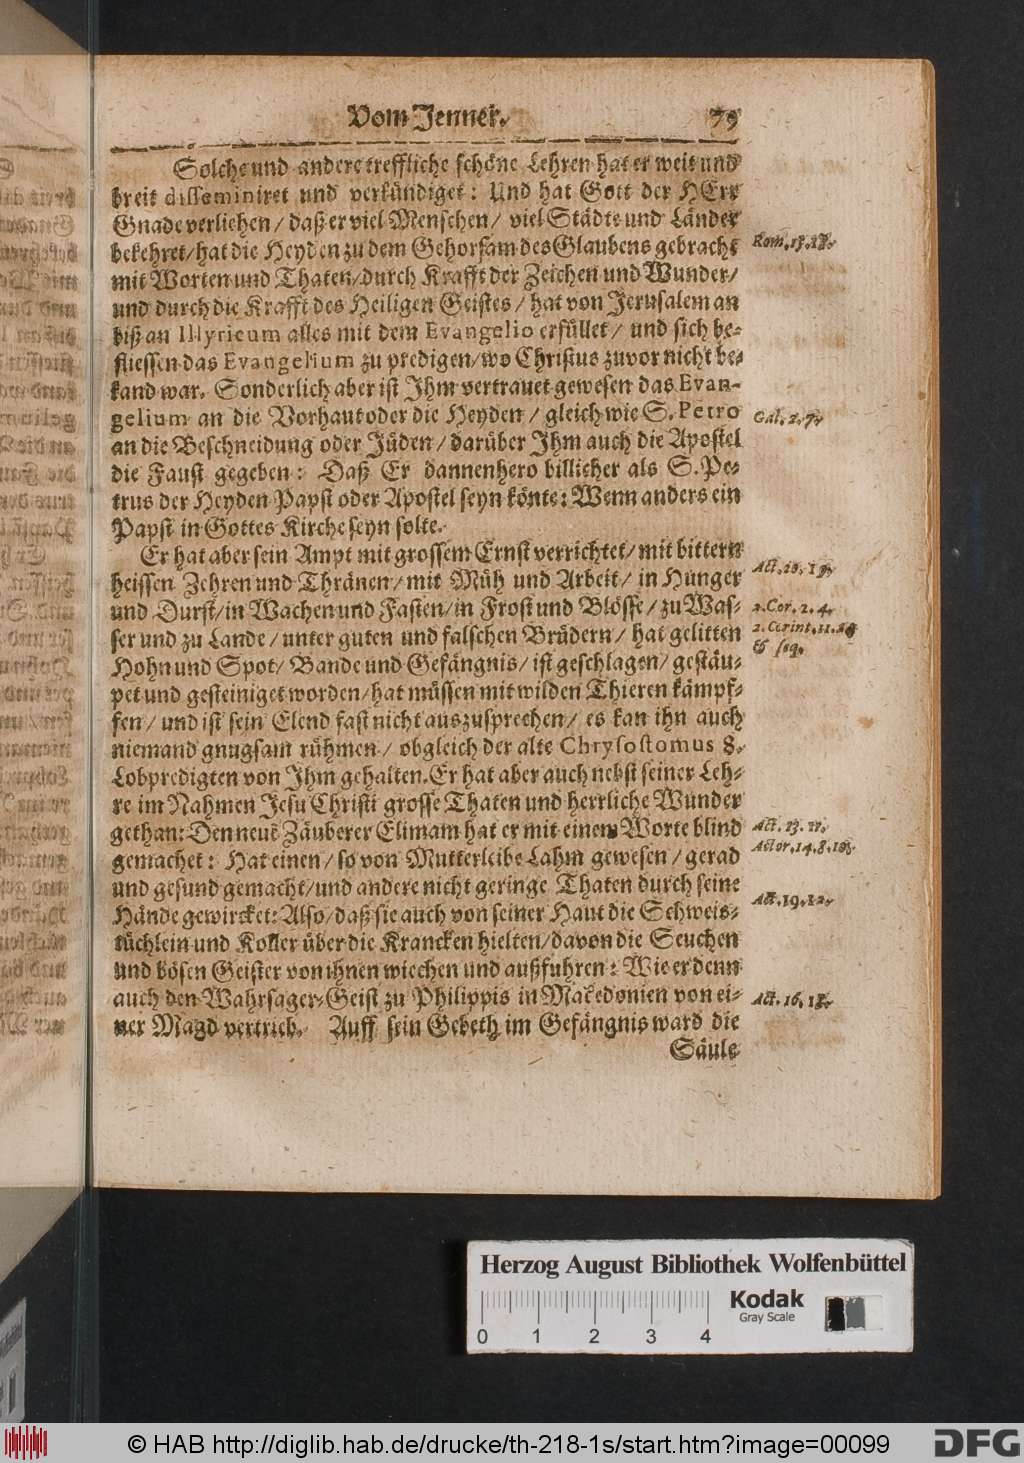 Vom Jenner. 79
Solche und andere treffliche schöne Lehren hat er weit und
breit disseminiret und verkündiget: Und hat Gott der HErr
Gnade verliehen/ daß er viel Menschen/ viel Städte und Länder
bekehret/ hat die Heyden zu dem Gehorsam des Glaubens gebracht
Rom. 15. 18.
mit Worten und Thaten/ durch Krafft der Zeichen und Wunder/
und durch die Krafft des Heiligen Geistes/ hat von Jerusalem an
biß an Illyricum alles mit dem Evangelio erfüllet/ und sich be-
fliessen das Evangelium zu predigen/ wo Christus zuvor nicht be-
kand war. Sonderlich aber ist Ihm vertrauet gewesen das Evan-
gelium an die Vorhaut oder die Heyden/ gleich wie S. Petro
Gal. 2. 7.
an die Beschneidung oder Jüden/ darüber Ihm auch die Apostel
die Faust gegeben: Daß Er dannenhero billicher als S. Pe-
trus der Heyden Papst oder Apostel seyn könte: Wenn anders ein
Papst in Gottes Kirche seyn solte.
Er hat aber sein Ampt mit grossem Ernst verrichtet/ mit bittern
Act. 20. 19.
heissen Zehren und Thränen/ mit Müh und Arbeit/ in Hunger
und Durst/ in Wachen und Fasten/ in Frost und Blösse/ zu Was-
2. Cor. 2. 4.
ser und zu Lande/ unter guten und falschen Brüdern/ hat gelitten
2. Corint. 11.
& seq.
Hohn und Spot/ Bande und Gefängnis/ ist geschlagen/ gestäu-
pet und gesteiniget worden/ hat müssen mit wilden Thieren kämpf-
fen/ und ist sein Elend fast nicht auszusprechen/ es kan ihn auch
niemand gnugsam rühmen/ obgleich der alte Chrysostomus 8.
Lobpredigten von Ihm gehalten. Er hat aber auch nebst seiner Leh-
re im Nahmen Jesu Christi grosse Thaten und herrliche Wunder
gethan: Den neuē Zäuberer Elimam hat er mit einem Worte blind
Act. 13. 11.
gemachet: Hat einen/ so von Mutterleibe Lahm gewesen/ gerad
Actor. 14. 8. 10.
und gesund gemacht/ und andere nicht geringe Thaten durch seine
Hände gewircket: Also/ daß sie auch von seiner Haut die Schweis-
Act. 19. 12.
tüchlein und Koller über die Krancken hielten/ davon die Seuchen
und bösen Geister von ihnen wiechen und außfuhren: Wie er denn
auch den Wahrsager-Geist zu Philippis in Makedonien von ei-
Act. 16. 18.
ner Magd vertrieb. Auff sein Gebeth im Gefängnis ward die
Säule
Herzog August Bibliothek Wolfenbüttel
Kodak
Gray Scale
0 1 2 3 4
© HAB http://diglib.hab.de/drucke/th-218-1s/start.htm?image=00099
DFG